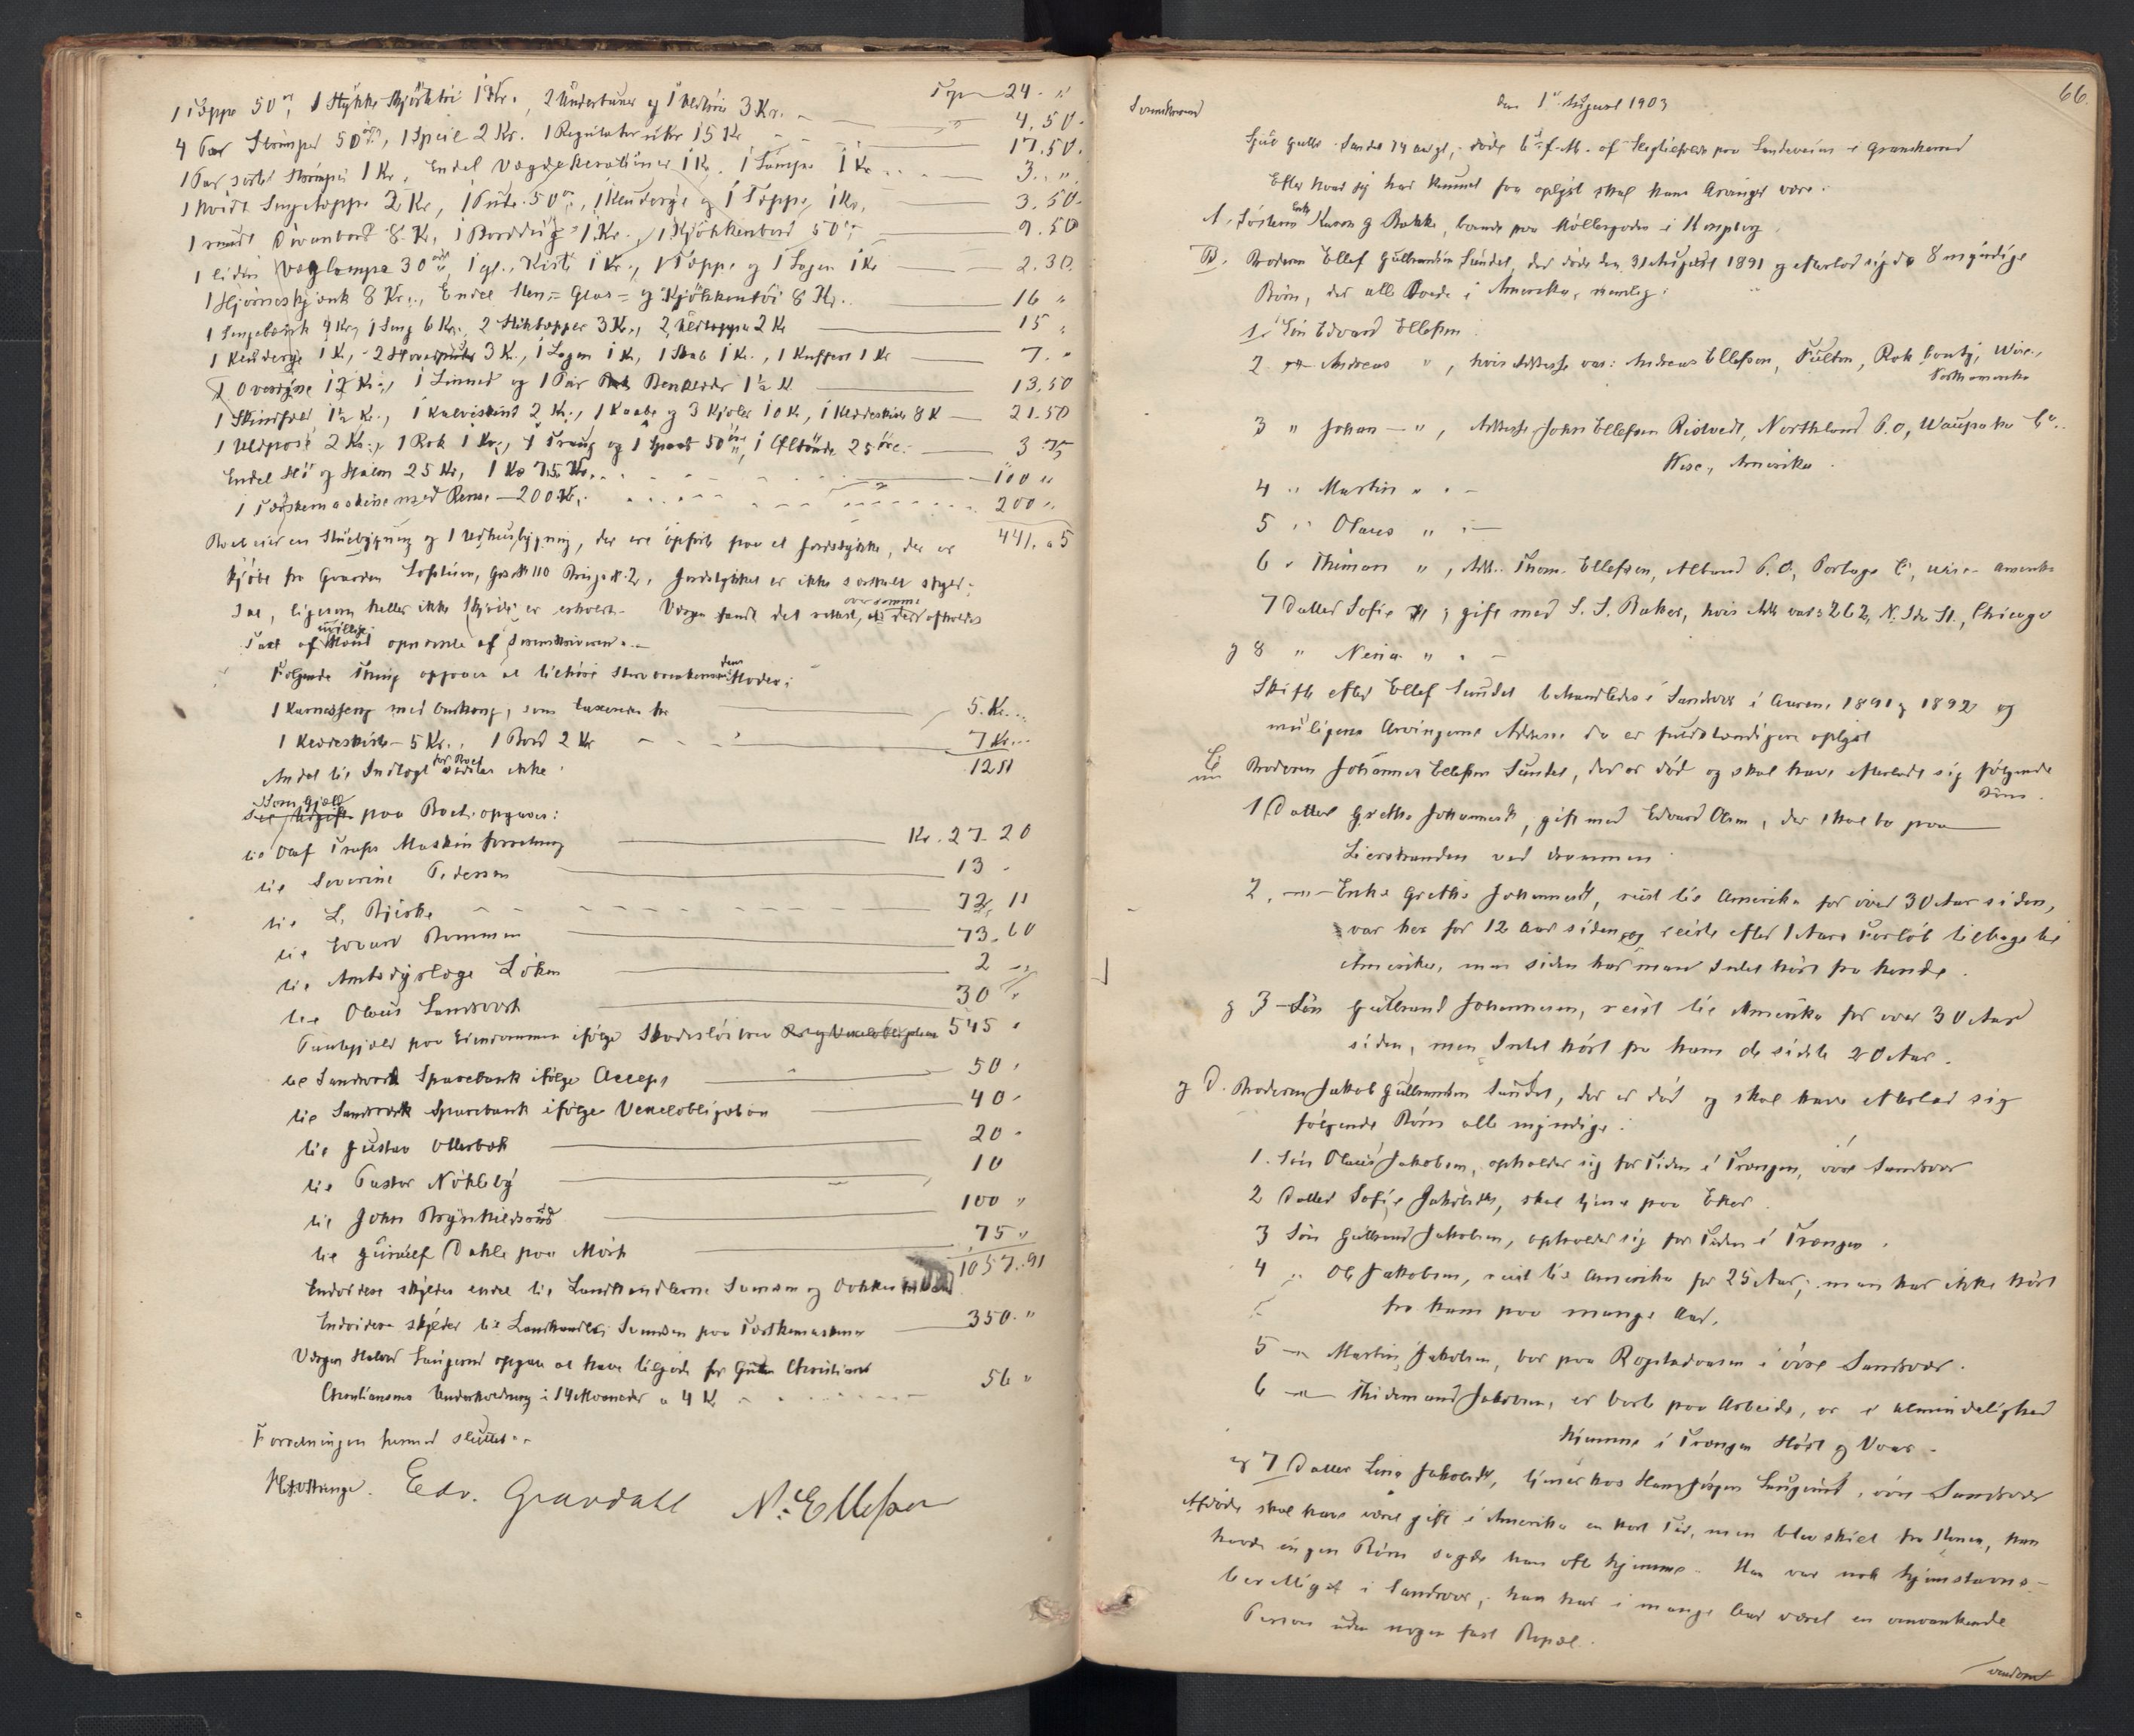 Trp 24. "
1 Tæppe 50 ør, 1 Stykke Skjørttøi 1 Kr., 2 Underbuxer og 1 3 Kr. 4.50.
4 Par Strømper 50 øre, 1 Speil 2 Kr. 1 Regulator 15 Kr 17.50.
1 Par Strømper 1 Kr, Endel Vægdekorationer 1 Kr. 1 Lampe 1 Kr 3. "
1 hvidt Sengetæppe 2 Kr, 1 Pude 50 ør, 1 og 1 Tæppe 1 Kr, 3.50.
1 rundt Divanbord 8 Kr, 1 Borddug 1 Kr., 1 Kjøkkenbord 50 ør 9.50
1 liden Væglampe 30 øre, 1 gl. Kiste 1 Kr, 1 Tæppe og 1 Lagen 1 Kr 2.30.
1 Hjørneskjænk 8 Kr., Endel Sten= Glas= og Kjøkkentøi 8 Kr. 16 "
1 Sengebænk 4 Kr, 1 Seng 6 Kr., 2 Stiktæpper 3 Kr., 2 2 Kr 15 "
1 1 Kr, 2 3 Kr., 1 Lagen 1 Kr, 1 Skab 1 Kr., 1 Kuffert 1 Kr 7. "
1 Overdyne 12 Kr., 1 Linned og 1 Par Benklær 1½ Kr 13.50
1 Skindfeld 1½ Kr., 1 Kalveskind 2 Kr., 1 Kaabe og 3 Kjoler 10 Kr, 1 Klædeskab 8 K 21.50
1 Uldpose 2 Kr., 1 Rok 1 Kr., 1 Traug og 1 Spand 50 øre, 1 Øltønde 25 øre. 3.75
Endel Hø og Halm 25 Kr, 1 Ko 75 Kr. 100 "
1 Tærskemaskine med Rem — 200 Kr. 200 "
Boet eier en Stuebygning og 1 Udhusbygning, der ere opført paa et Jordstykke, der er 441.05
kjøbt fra Gaarden, G. No 110 Brugs N. 2, Jordstykket er ikke særskilt skyld-
sat, ligesom heller ikke Skjøde er erhvervet. Værgen fandt det rettest, at der over samme afholdes
Taxt af uvillige Mænd opnævnte af Sorenskriveren.
Følgende Ting opgives at tilhøre Moder:
1 Karnesseng med Omhæng, som taxeres til 5 Kr.
1 Klædeskab 5 Kr., 1 Bord 2 Kr 7 Kr.
Andet til Indtægt for Boet vides ikke 12 "
Som Gjæld paa Boet opgives:
til Olaf Maskinforretning Kr. 27.20
til Severine Pedersen 13 "
til L. Bjerke 72.11
til Edvard Rommen 73.60
til Amtsdyrlæge Løken 2 "
til Olaus Landsverk 30 "
Pantegjæld paa Eiendommen ifølge Skadesløsbrev 545 "
til Sandsvær Sparebank ifølge Accept 50 "
til Sandsvær Sparebank ifølge Vexelobligation 40 "
til Gustav Ollerbæk 20 "
til Pastor Nøkleby 10
til John Brynhildsrud 100 "
til Gunulf Dahle paa Mørk 75 "
1057.91
Endvidere skyldes endel til Landhandlerne Svendsen og Bakken
Endvidere skyldes til Landhandler Svendsen paa Tærskemaskinen 350. "
Værgen Halvor opgav at have tilgode for Gutten Christian
Christiansens Underholdning i 14 Maaneder a 4 Kr 56 "
Forretningen hermed sluttet.
Edv. Gravdahl N. Ellefsen
66.
Sorenskriveren
den 1ste August 1903
74 aar gl., døde 6te f. M. af paa Landeveien i Gransherred
Efter hvad jeg har kunnet faa oplyst skal hans Arvinger være:
A. Søsteren Karen G. Bakke, boende paa Møllergaden i Kongsberg
B. Broderen Ellef Gulbrandsen Sundet, der døde den 31 August 1891 og efterlod sig 8 myndige
Børn, der alle boede i Amerika, nemlig:
1. Søn Edvard Ellefsen
2 — Andreas ", hvis Adresse var: Andreas Ellefsen, Fulton, Rok County, Wisc.,
Nordamerika
3 " Johan — ", Adresse John Ellefsen Risteedt, Northland P.O, Waupaka Co.
Wisc., Amerika.
4 " Martin " " —
5 " Olaus " " —
6 " Thimon ", Adr. Thom. Ellefsen, Alband P.O, Portage C, Wisc. Amerika
7 Datter Sofie, gift med S. S. Baker, hvis Adr var: 262, N. St., Chicago
og 8 " " " —
Skifte efter Ellef Sundet behandledes i Sandsvær i Aarene 1891 og 1892 og
muligens Arvingernes Adresse da er fuldstændigere oplyst
C Broderen Johannes Ellefsen Sundet, der er død og skal have efterladt sig følgende
Børn.
1 Datter Grethe Johannesdt, gift med Edvard Olsen, der skal bo paa
Lierstranden ved Drammen
2. — Enke Grethe Johannesdt, reist til Amerika for over 30 Aar siden,
var her for 12 Aar siden og reiste efter 1 Aars Forløb tilbage til
Amerika, men siden har man Intet hørt fra hende.
og 3 Søn Gulbrand Johannesen, reist til Amerika for over 30 Aar
siden, men Intet hørt fra ham de sidste 20 Aar.
og D. Broderen Jakob Gulbrandsen Sundet, der er død og skal have efterlad sig
følgende Børn alle myndige:
1. Søn Olaus Jakobsen, opholder sig for Tiden i Trængen, øvre Sandsvær
2 Datter Sofie Jakobsdt, skal tjene paa Eker
3 Søn Gulbrand Jakobsen, opholder sig for Tiden i Trængen.
4 " Ole Jakobsen, reist til Amerika for 25 Aar; man har ikke hørt
fra ham paa mange Aar.
5 — Martin Jakobsen, bor paa Rogstadaasen i øvre Sandsvær.
6 — Thidemand Jakobsen, er borte paa Arbeide, er i Almindelighed
hjemme i Trængen Høst og Vaar.
og 7 Datter Lina Jakobsdt, tjener hos Hans Jørgen, øvre Sandsvær
Afdøde skal have været gift i Amerika en kort Tid, men blev skilt fra Konen, han
havde ingen Børn sagde han ofte hjemme. Han var nok hjemstavns-
berettiget i Sandsvær, han har i mange Aar været en omvankende
Person uden nogen fast Bopæl.